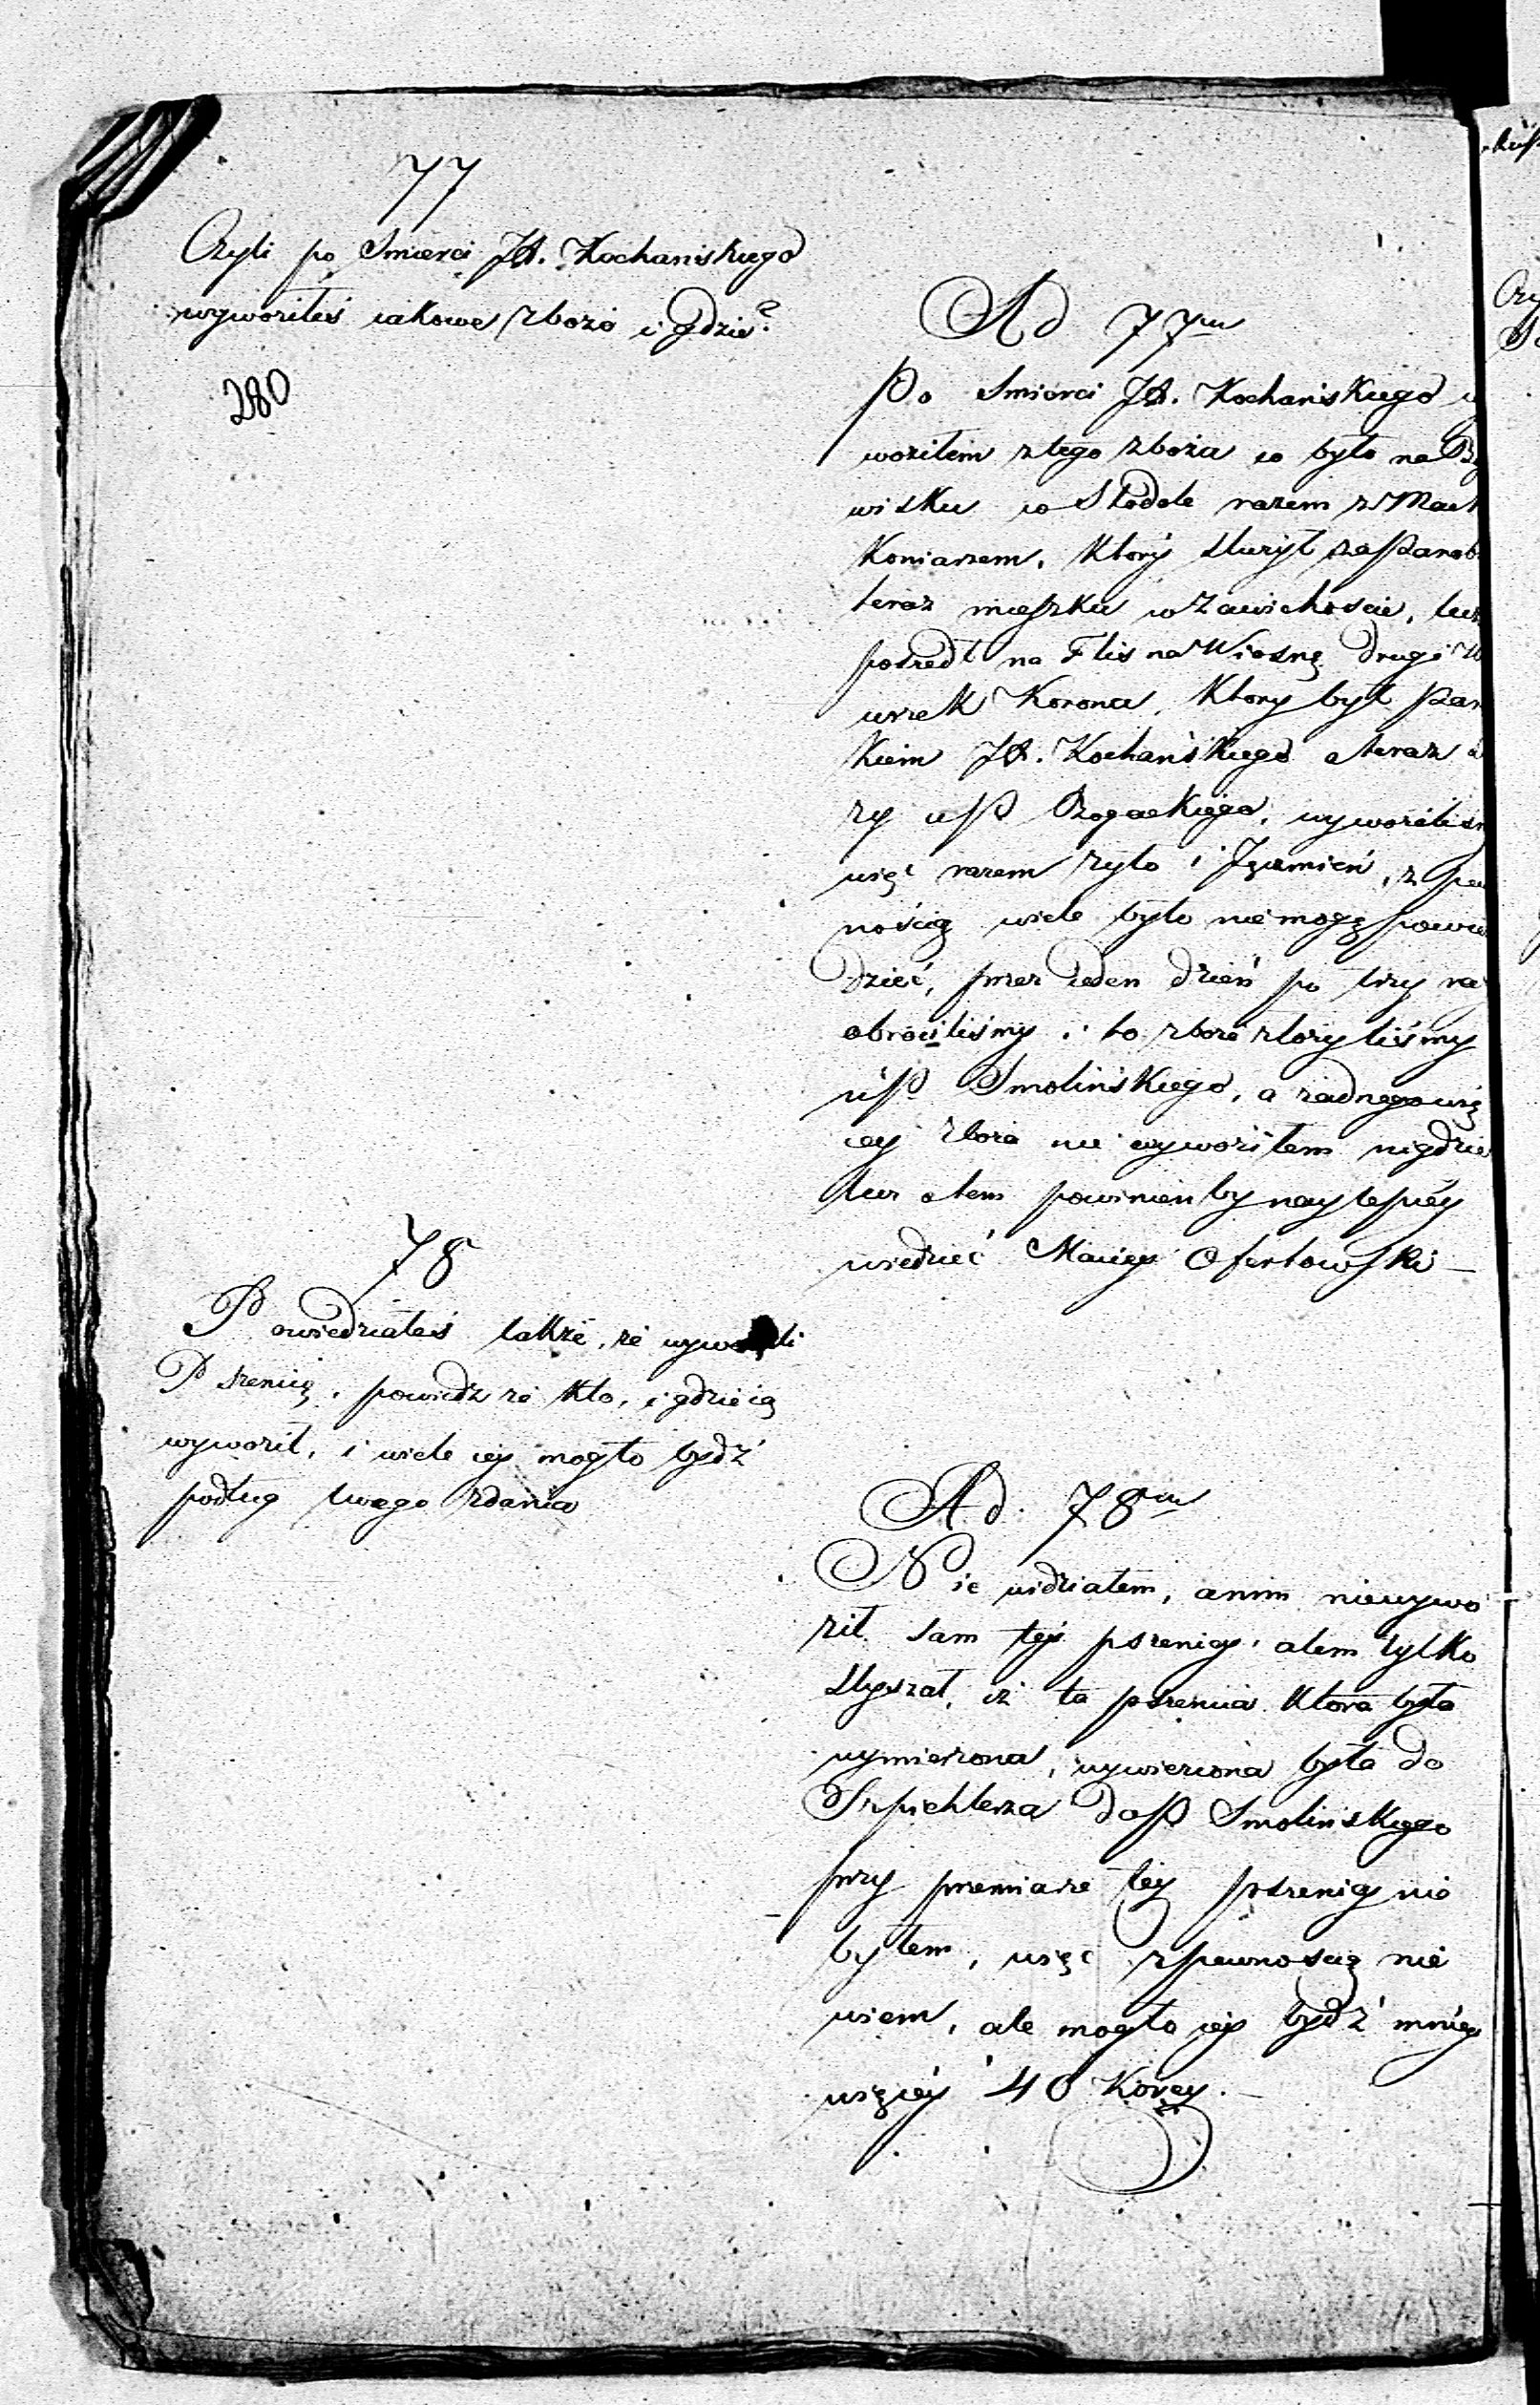 77
Czyli po Smierci JX. Kochaniskiego
wywoziłeś iakowe zboże i gdzie?
280
Ad 77m
Po Smierci JX. Kochaniskiego
woziłem z tego zboża co było na
wisku w Stodole razem z
Koniarzem, Który służył za
teraz mieszka w Zawichoscie, tesz
poszedł na Flis na Wiosnę drugi
wrzek Korona, Ktory był
Kiem JX. Kochańskiego a teraz
zy u P Rogackiego, wywozili
więc razem żyto i Jęczmień, z
nością wiele było nie mogę powie
dzieć, przez ieden dzień po trzy ra
obróciliśmy i to zboże złożyliśmy
u P. Smolińskiego, a żadnego wię
cey zboża nie wywoziłem nigdzie
tesz o tem powinien by naylepiéy
wiedzieć Maciey Ofertowski
78
Powiedziałeś także, że
Pszenicę, powiedz że Kto, i gdzie ią
wywoził, i wiele iey mogło bydź
podług twego zdania
Ad 78m
Nie widziałem, anim niewywo
ził sam téy pszenicy, alem tylko
słyszał, iż ta pszenica Która była
wymierzona, wywiezioná była do
Szpichlerza do P Smolinskiego
przy przemiarze tey pszenicy nie
byłem, więc z pewnoscią nie
wiem, ale mogło iéy bydź mniéy
więcéy 40 Korcy.